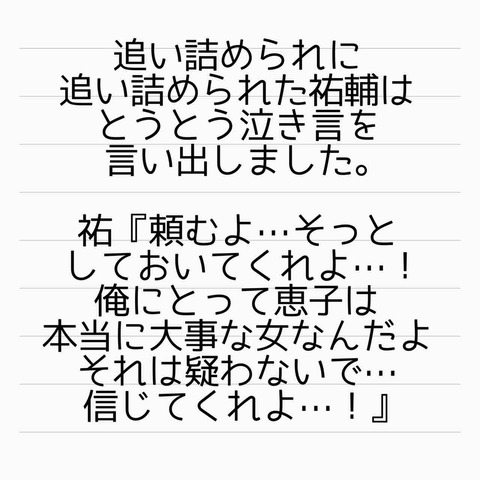 追い詰められに
追い詰められた祐輔は
とうとう泣き言を
言い出しました。
祐『頼むよ…そっと
しておいてくれよ…！
俺にとって恵子は
本当に大事な女なんだよ
それは疑わないで…
信じてくれよ…！』